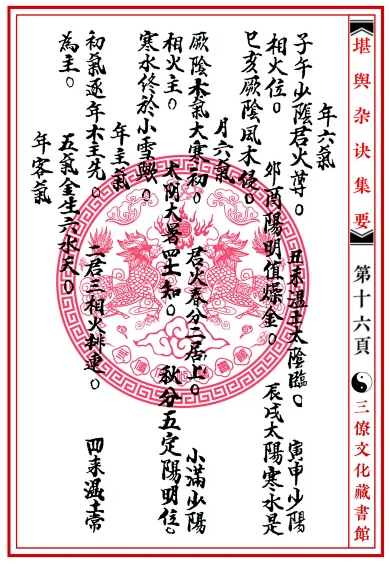 堪舆杂诀集要 第十六頁 三僚文化藏書館
年六氣
子午少陰君火尊。丑未湿土太陰臨。寅申少陽
相火位。卯酉陽明值燥金。辰戌太陽寒水是
巳亥厥陰風木侵。
月六氣
厥陰木氣大寒初。君火春分二居上。小滿少陽
相火主。太阴大暑四土知。秋分五定陽明位。
寒水终於小雪興。
年主氣
初氣逐年木主先。二君三相火排連。四来湿土常
為主。五氣金生六水天。
年客氣